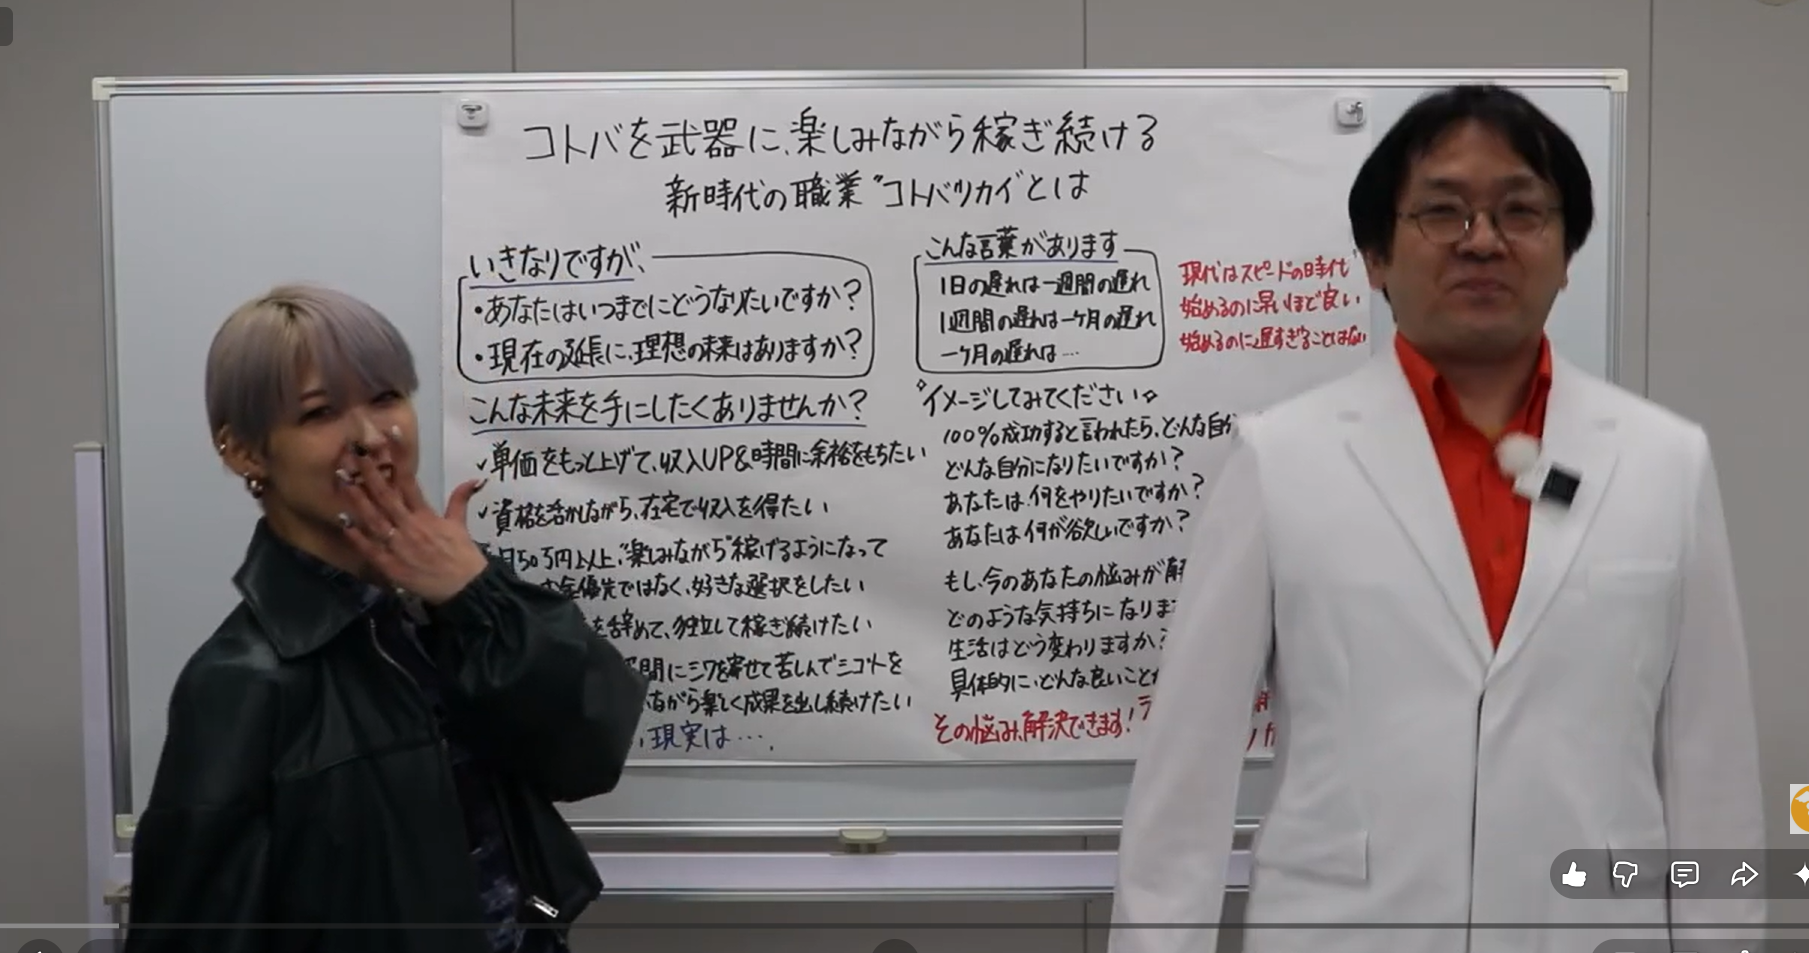 コトバを武器に、楽しみながら稼ぎ続ける
新時代の職業“コトバツカイ”とは
いきなりですが、
・あなたはいつまでにどうなりたいですか?
・現在の延長に、理想の未来はありますか?
こんな未来を手にしたくありませんか?
✓単価をもっと上げて、収入UP&時間に余裕をもちたい
✓資格を活かしながら、在宅で収入を得たい
月50万円以上、“楽しみながら”稼げるようになって
お金優先ではなく、好きな選択をしたい
を辞めて、独立して稼ぎ続けたい
間にシワを寄せて苦しんでシゴトを
ながら楽しく成果を出し続けたい
現実は…
こんな言葉があります
1日の遅れは一週間の遅れ
1週間の遅れは一ケ月の遅れ
一ケ月の遅れは…
現代はスピードの時代
始めるのに早いほど良い
始めるのに遅すぎることはない
イメージしてみてください
100%成功すると言われたら、どんな自分
どんな自分になりたいですか?
あなたは、何をやりたいですか?
あなたは、何が欲しいですか?
もし、今のあなたの悩みが解
どのような気持ちになりま
生活はどう変わりますか?
具体的に、どんな良いことが
その悩み、解決できます!